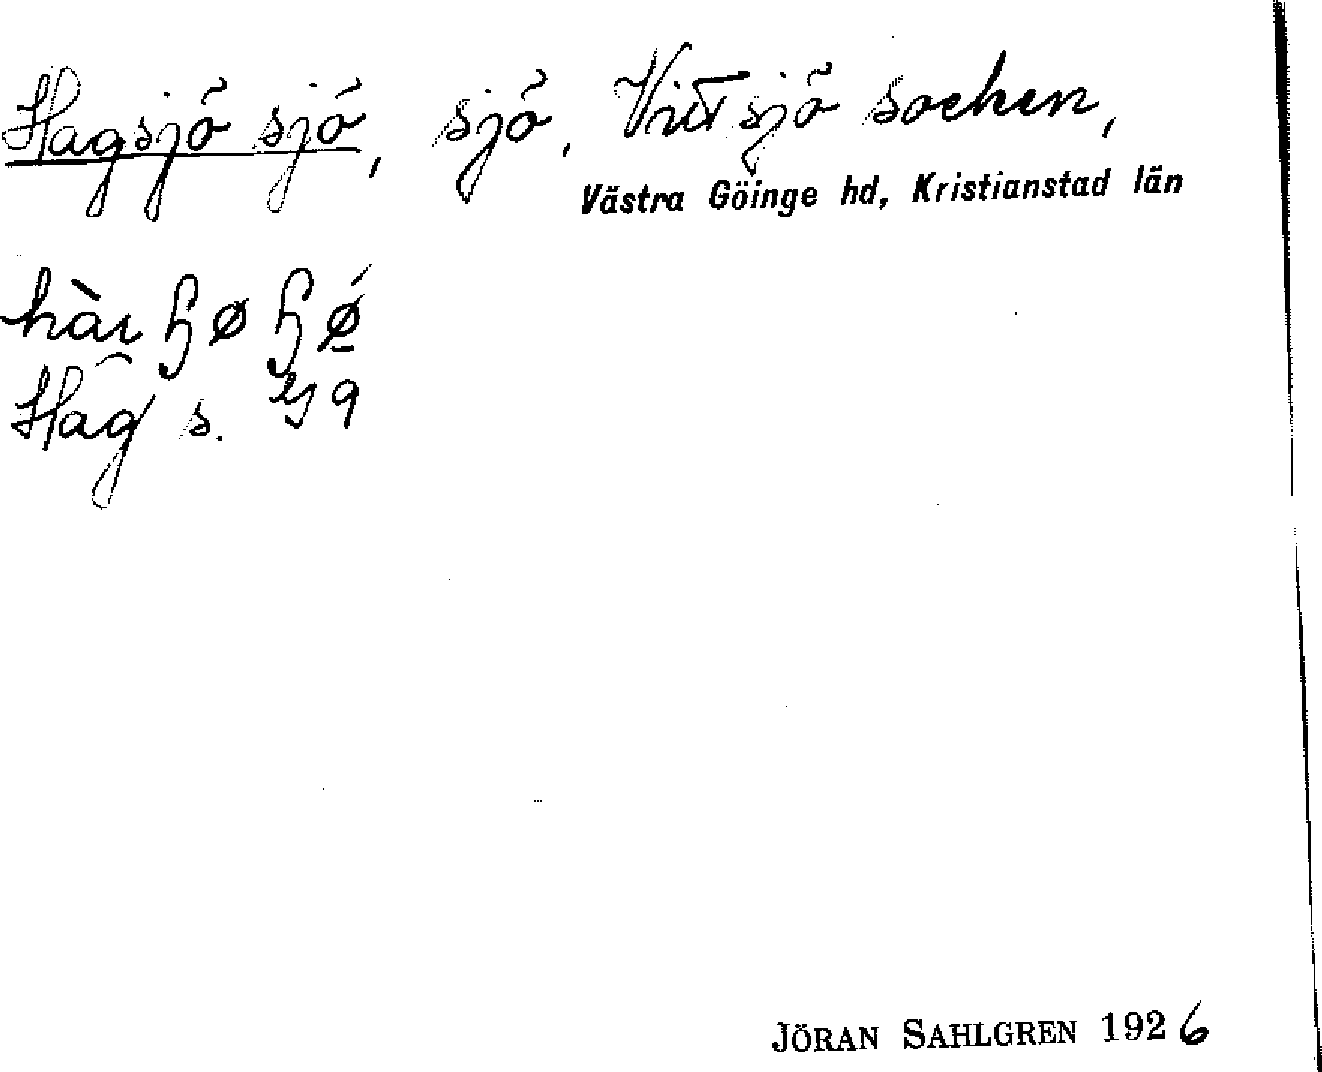 Hagsjö sjö, sjö, Vittsjö socken,
Västra Göinge hd, Kristianstad län
Hag s.
JÖRAN SAHLGREN 1926